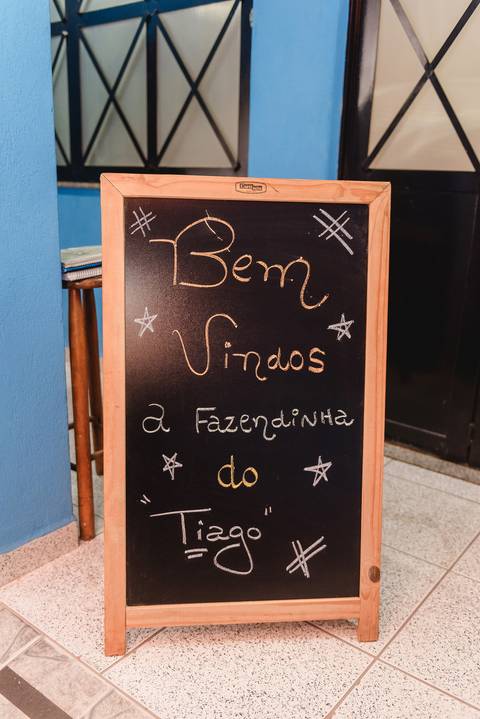 Bem
Vindos
a Fazendinha
do
"Tiago"